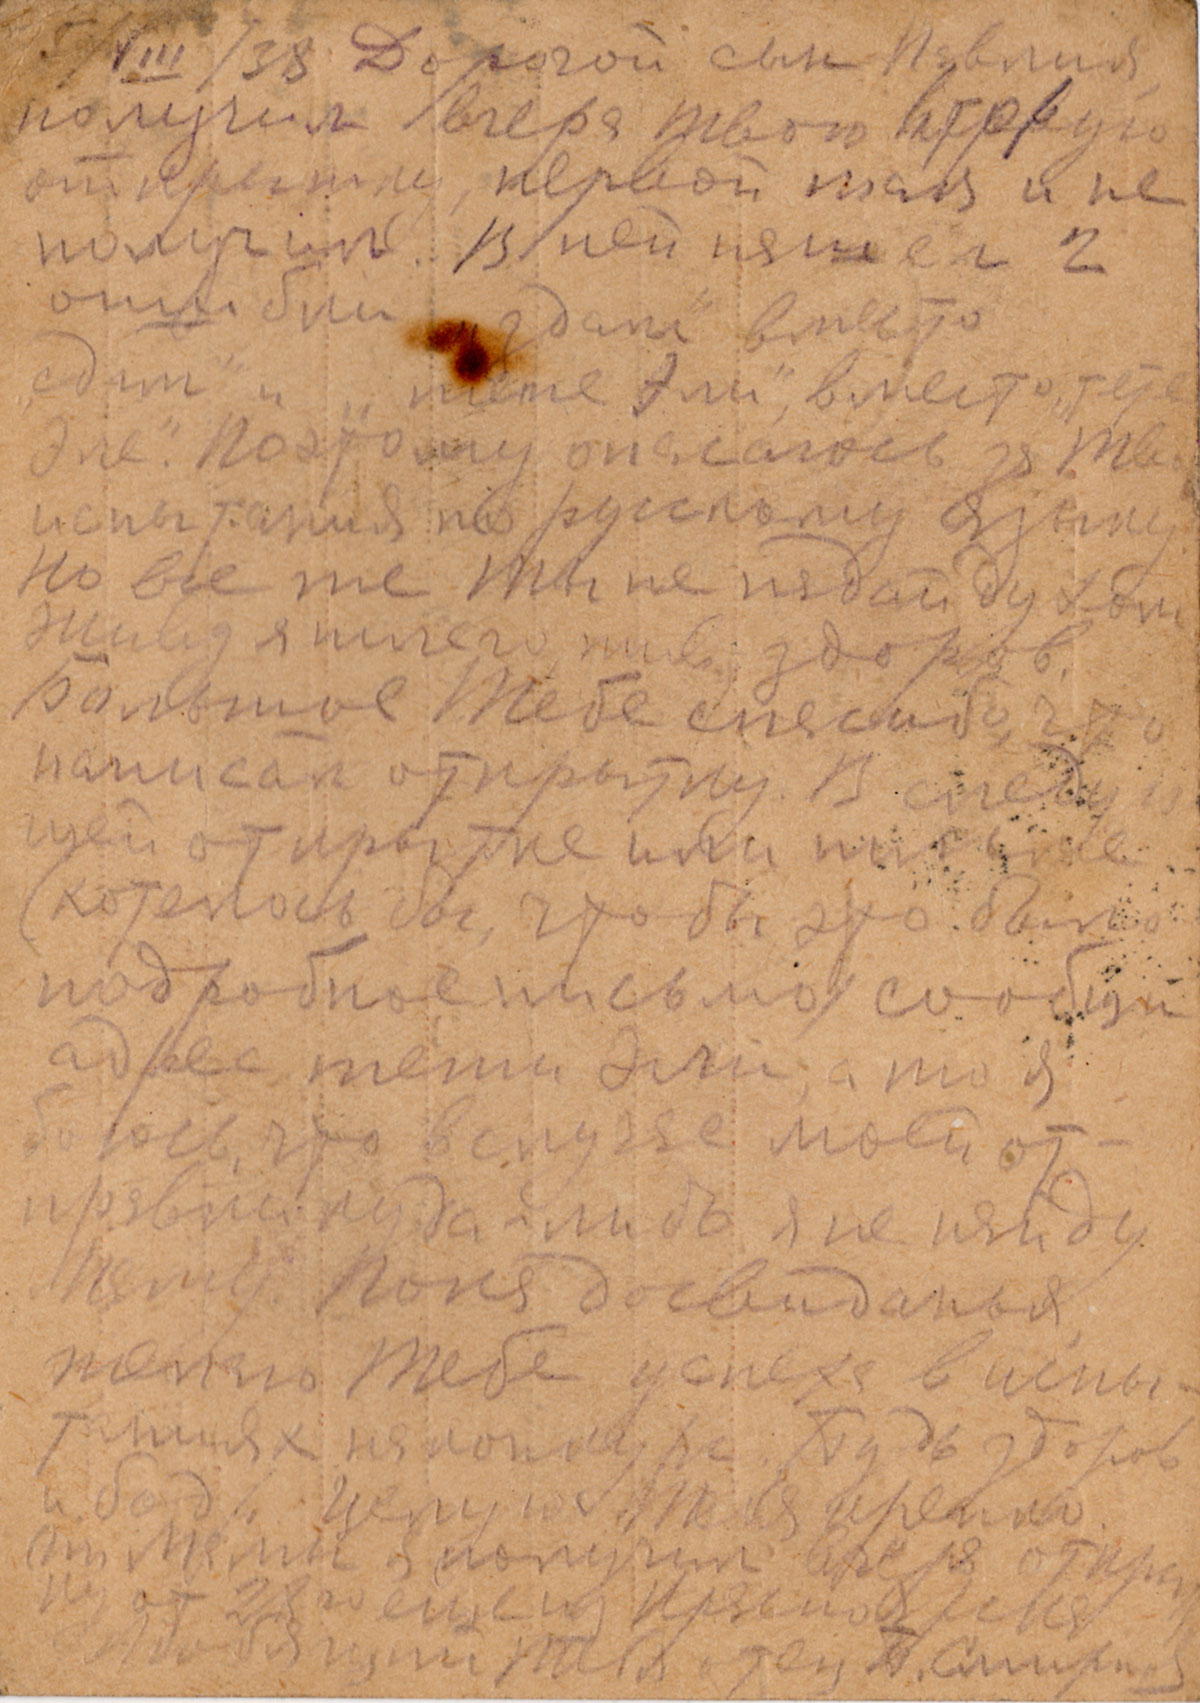 VIII/38 Дорогой сын Павлик,
получил вчера твою вторую
открытку, первой пока и не
получил. В ней нашел 2
ошибки „здали" вместо
„сдал" и „тете Эли", вместо „тете
Эле". Поэтому опасаюсь за Твои
испытания по русскому языку
Но все же Ты не падай духом
здоров,
Большое Тебе спасибо, что
написал открытку. В следую
щей открытке или письме
(хотелось бы, чтобы это было
подробное письмо) сообщи
адрес тети Эли, а то я
боюсь, что в случае моей от-
правки куда-либо я не найду
Маму. Пока досвиданья,
желаю Тебе успеха в испы-
таниях на конкурс. Будь здоров
и бодр. Целую Тебя крепко.
От Мамы я получил вчера открыт
ку от 28го еще из
Любящий Тебя отец П. Смирнов